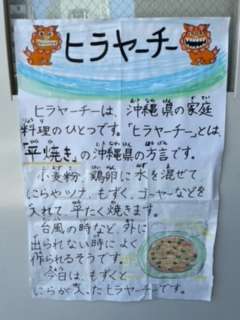 ヒラヤーチー
ヒラヤーチーは、沖縄県の家庭
料理のひとつです。「ヒラヤーチー」とは、
「平焼き」の沖縄県の方言です。
小麦粉、鶏卵に水を混ぜて
にらやツナ、もずく、ゴーヤーなどを
入れて平たく焼きます。
台風の時など、外に
出られない時によく
作られるそうです。
今日は、もずくと
にらが入ったヒラヤーチーです。